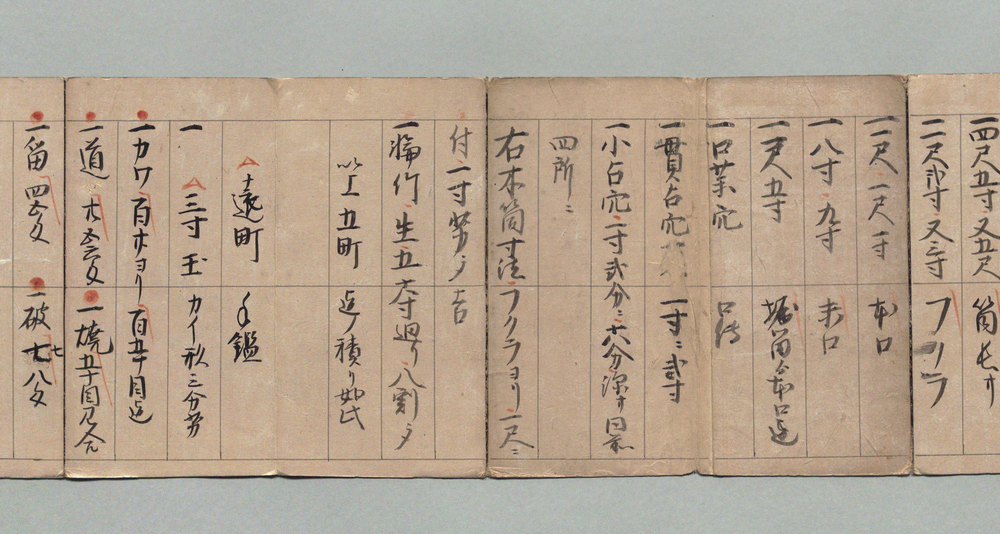 一四尺五寸又五尺 筒長サ
一二尺弐寸又三寸 フクラ
一一尺一尺一寸 本口
一八寸九寸 末口
一一尺五寸 堀留ゟ本口迄
一口薬穴 口伝
一貫目穴 一寸二弐寸
一小目穴二寸弐分二八分深サ同前
四所ニ
右木筒寸法フクラヨリ一尺ニ
付一寸劣タ吉
一輪竹生五六寸廻リ八割タ
以上五町迄ノ積リ如此
遠町 手鑑
一三寸玉 カイ形三分劣
一カワ百木ヨリ百五十目迄
一道 一焼五十目見合
一留四匁 一破七八匁